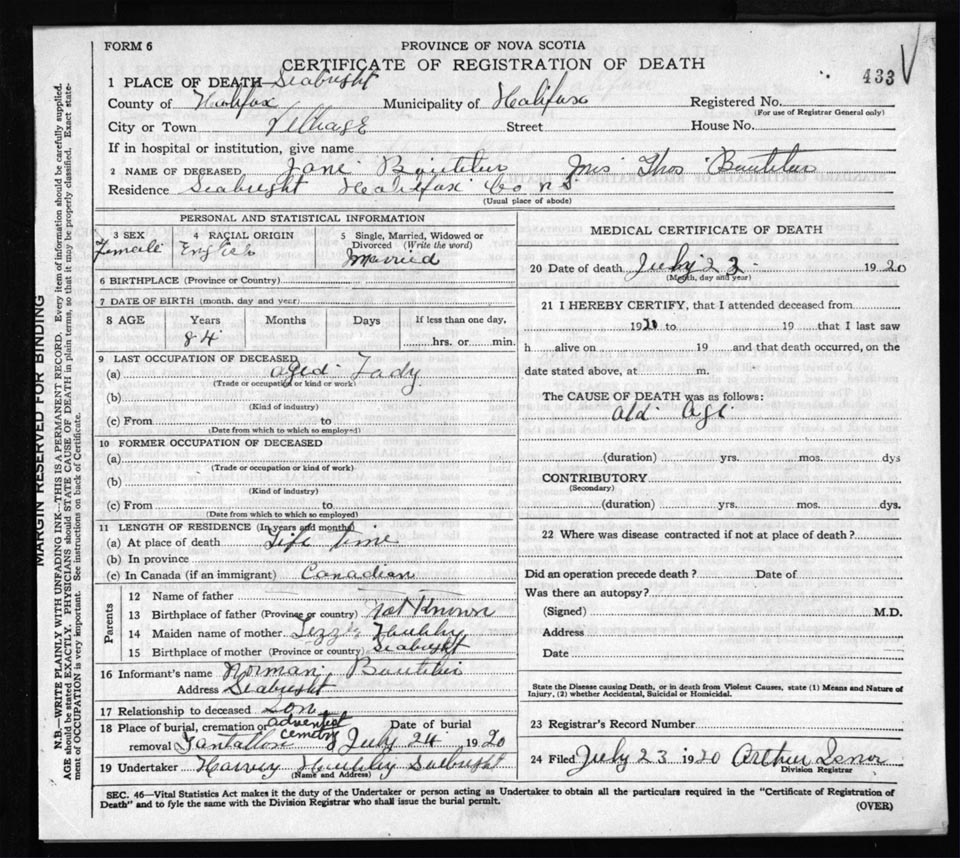 FORM 6
PROVINCE OF NOVA SCOTIA
CERTIFICATE OF REGISTRATION OF DEATH
433
1 PLACE OF DEATH Seabright
County of Halifax Municipality of Halifax Registered No.
(For use of Registrar General only)
City or Town Village Street House No.
If in hospital or institution, give name
2 NAME OF DECEASED Jane Boutilier Mrs Thos Boutilier
Residence Seabright Halifax Co N.S.
(Usual place of abode)
PERSONAL AND STATISTICAL INFORMATION
3 SEX 4 RACIAL ORIGIN 5 Single, Married, Widowed or Divorced (Write the word)
Female English Married
6 BIRTHPLACE (Province or Country)
7 DATE OF BIRTH (month, day and year)
8 AGE Years Months Days If less than one day,
84 hrs. or min.
9 LAST OCCUPATION OF DECEASED
(a) aged Lady
(Trade or occupation or kind or work)
(b)
(Kind of industry)
(c) From to
(Date from which to which so employed)
10 FORMER OCCUPATION OF DECEASED
(a)
(Trade or occupation or kind of work)
(b)
(Kind of industry)
(c) From to
(Date from which to which so employed)
11 LENGTH OF RESIDENCE (In years and months)
(a) At place of death Life time
(b) In province
(c) In Canada (if an immigrant) Canadian
Parents
12 Name of father
13 Birthplace of father (Province or country) Not Known
14 Maiden name of mother Lizzie Hubley
15 Birthplace of mother (Province or country) Seabright
16 Informant's name Norman Boutilier
Address Seabright
17 Relationship to deceased Son
18 Place of burial, cremation or removal adventist cemetry Tantallon Date of burial July 24 1920
19 Undertaker Harvey Hubley Seabright
(Name and Address)
MEDICAL CERTIFICATE OF DEATH
20 Date of death July 23 1920
(Month, day and year)
21 I HEREBY CERTIFY, that I attended deceased from
1920 to 19 that I last saw
h alive on 19 and that death occurred, on the
date stated above, at m.
The CAUSE OF DEATH was as follows:
old age
(duration) yrs. mos. dys
CONTRIBUTORY
(Secondary)
(duration) yrs. mos. dys.
22 Where was disease contracted if not at place of death?
Did an operation precede death? Date of
Was there an autopsy?
(Signed) M.D.
Address
Date
State the Disease causing Death, or in death from Violent Causes, state (1) Means and Nature of
Injury, (2) whether Accidental, Suicidal or Homicidal.
23 Registrar's Record Number
24 Filed July 23 1920 Arthur Isnor
Division Registrar
SEC. 46—Vital Statistics Act makes it the duty of the Undertaker or person acting as Undertaker to obtain all the particulars required in the "Certificate of Registration of
Death" and to fyle the same with the Division Registrar who shall issue the burial permit.
(OVER)
MARGIN RESERVED FOR BINDING
N.B.—WRITE PLAINLY WITH UNFADING INK—THIS IS A PERMANENT RECORD. Every item of information should be carefully supplied.
AGE should be stated EXACTLY. PHYSICIANS should STATE CAUSE OF DEATH in plain terms, so that it may be properly classified. Exact state-
ment of OCCUPATION is very important. See instructions on back of Certificate.